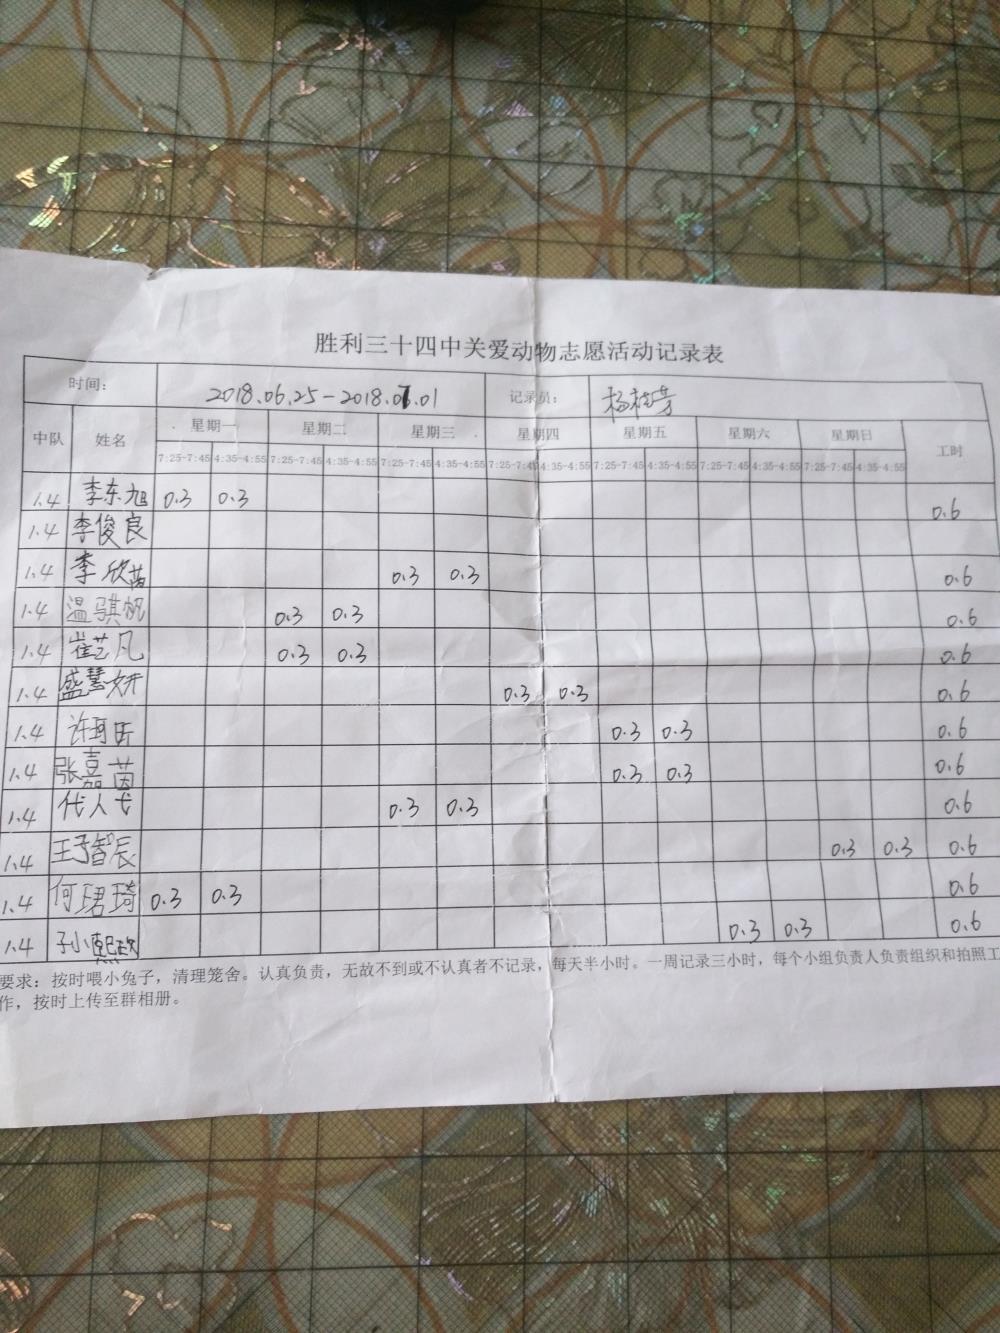 胜利三十四中关爱动物志愿活动记录表
时间： 2018.06.25-2018.07.01 记录员：
中队 姓名 星期一 星期二 星期三 星期四 星期五 星期六 星期日 工时
7:25-7:45 4:35-4:55 7:25-7:45 4:35-4:55 7:25-7:45 4:35-4:55 7:25-7:45 4:35-4:55 7:25-7:45 4:35-4:55 7:25-7:45 4:35-4:55 7:25-7:45 4:35-4:55
1.4 李东旭 0.3 0.3 0.6
1.4 李俊良
1.4 李欣茵 0.3 0.3 0.6
1.4 温骐帆 0.3 0.3 0.6
1.4 崔芝凡 0.3 0.3 0.6
1.4 盛慧妍 0.3 0.3 0.6
1.4 许珂昕 0.3 0.3 0.6
1.4 张嘉茵 0.3 0.3 0.6
1.4 代人弋 0.3 0.3 0.6
1.4 王予智辰 0.3 0.3 0.6
1.4 何珺琦 0.3 0.3 0.6
1.4 孙熙 0.3 0.3 0.6
要求：按时喂小兔子，清理笼舍。认真负责，无故不到或不认真者不记录，每天半小时。一周记录三小时，每个小组负责人负责组织和拍照工
作，按时上传至群相册。